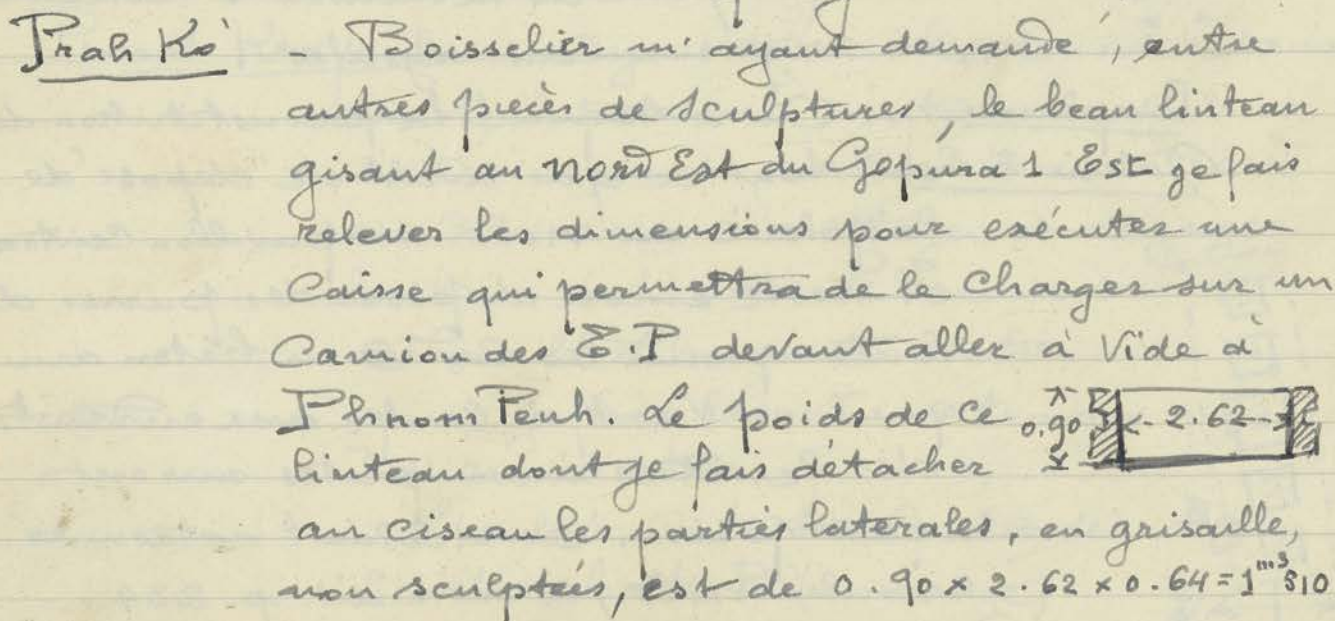 Prah Kô - Boisselier m'ayant demandé, entre
autres pièces de sculptures, le beau linteau
gisant au nord Est du Gopura 1 Est je fais
relever les dimensions pour exécuter une
Caisse qui permettra de le charger sur un
Camion des E.P devant aller à vide à
Phnom Penh. Le poids de ce 0.90 2.62
linteau dont je fais détacher
au ciseau les parties latérales, en grisaille,
non sculptées, est de 0.90 x 2.62 x 0.64 = 1m3 510